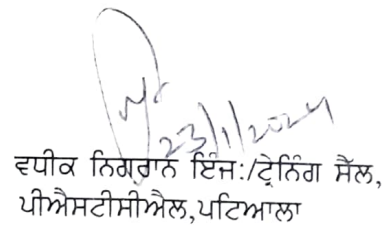 23/1/2024
ਵਧੀਕ ਨਿਗਰਾਨ ਇੰਜ:/ਟ੍ਰੇਨਿੰਗ ਸੈੱਲ,
ਪੀਐਸਟੀਸੀਐਲ,ਪਟਿਆਲਾ